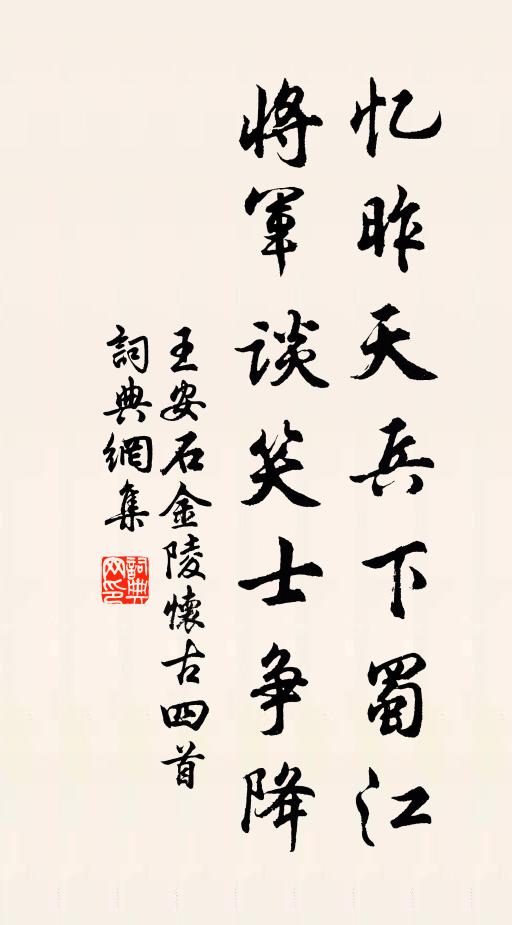 忆昨天兵下蜀江
将軍谈笑士争降
王安石金陵懷古四首
詞典網集
詞典网印